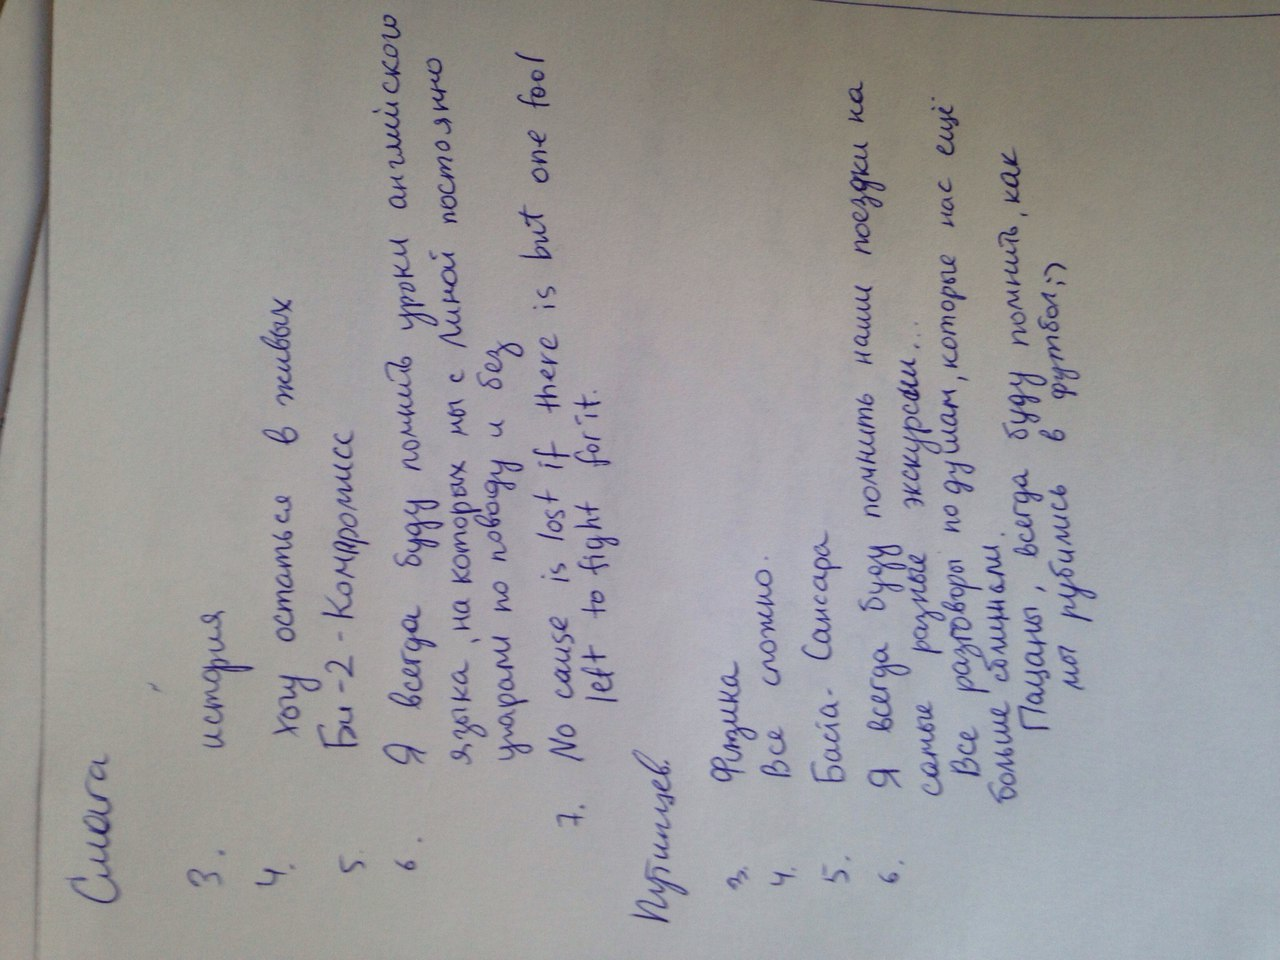 Смага
3. история
4. хочу остаться в живых
5. Би-2 - Компромисс
6. Я всегда буду помнить уроки английского
языка, на которых мы с Линой постоянно
угарали по поводу и без
7. No cause is lost if there is but one fool
left to fight for it.
Путинцев.
3. Физика
4. Все сложно.
5. Баста - Сансара
6. Я всегда буду помнить наши поездки на
самые разные экскурсии...
Все разговоры по душам, которые нас ещё
больше сблизили.
Пацаны, всегда буду помнить, как
мы рубились в футбол;)